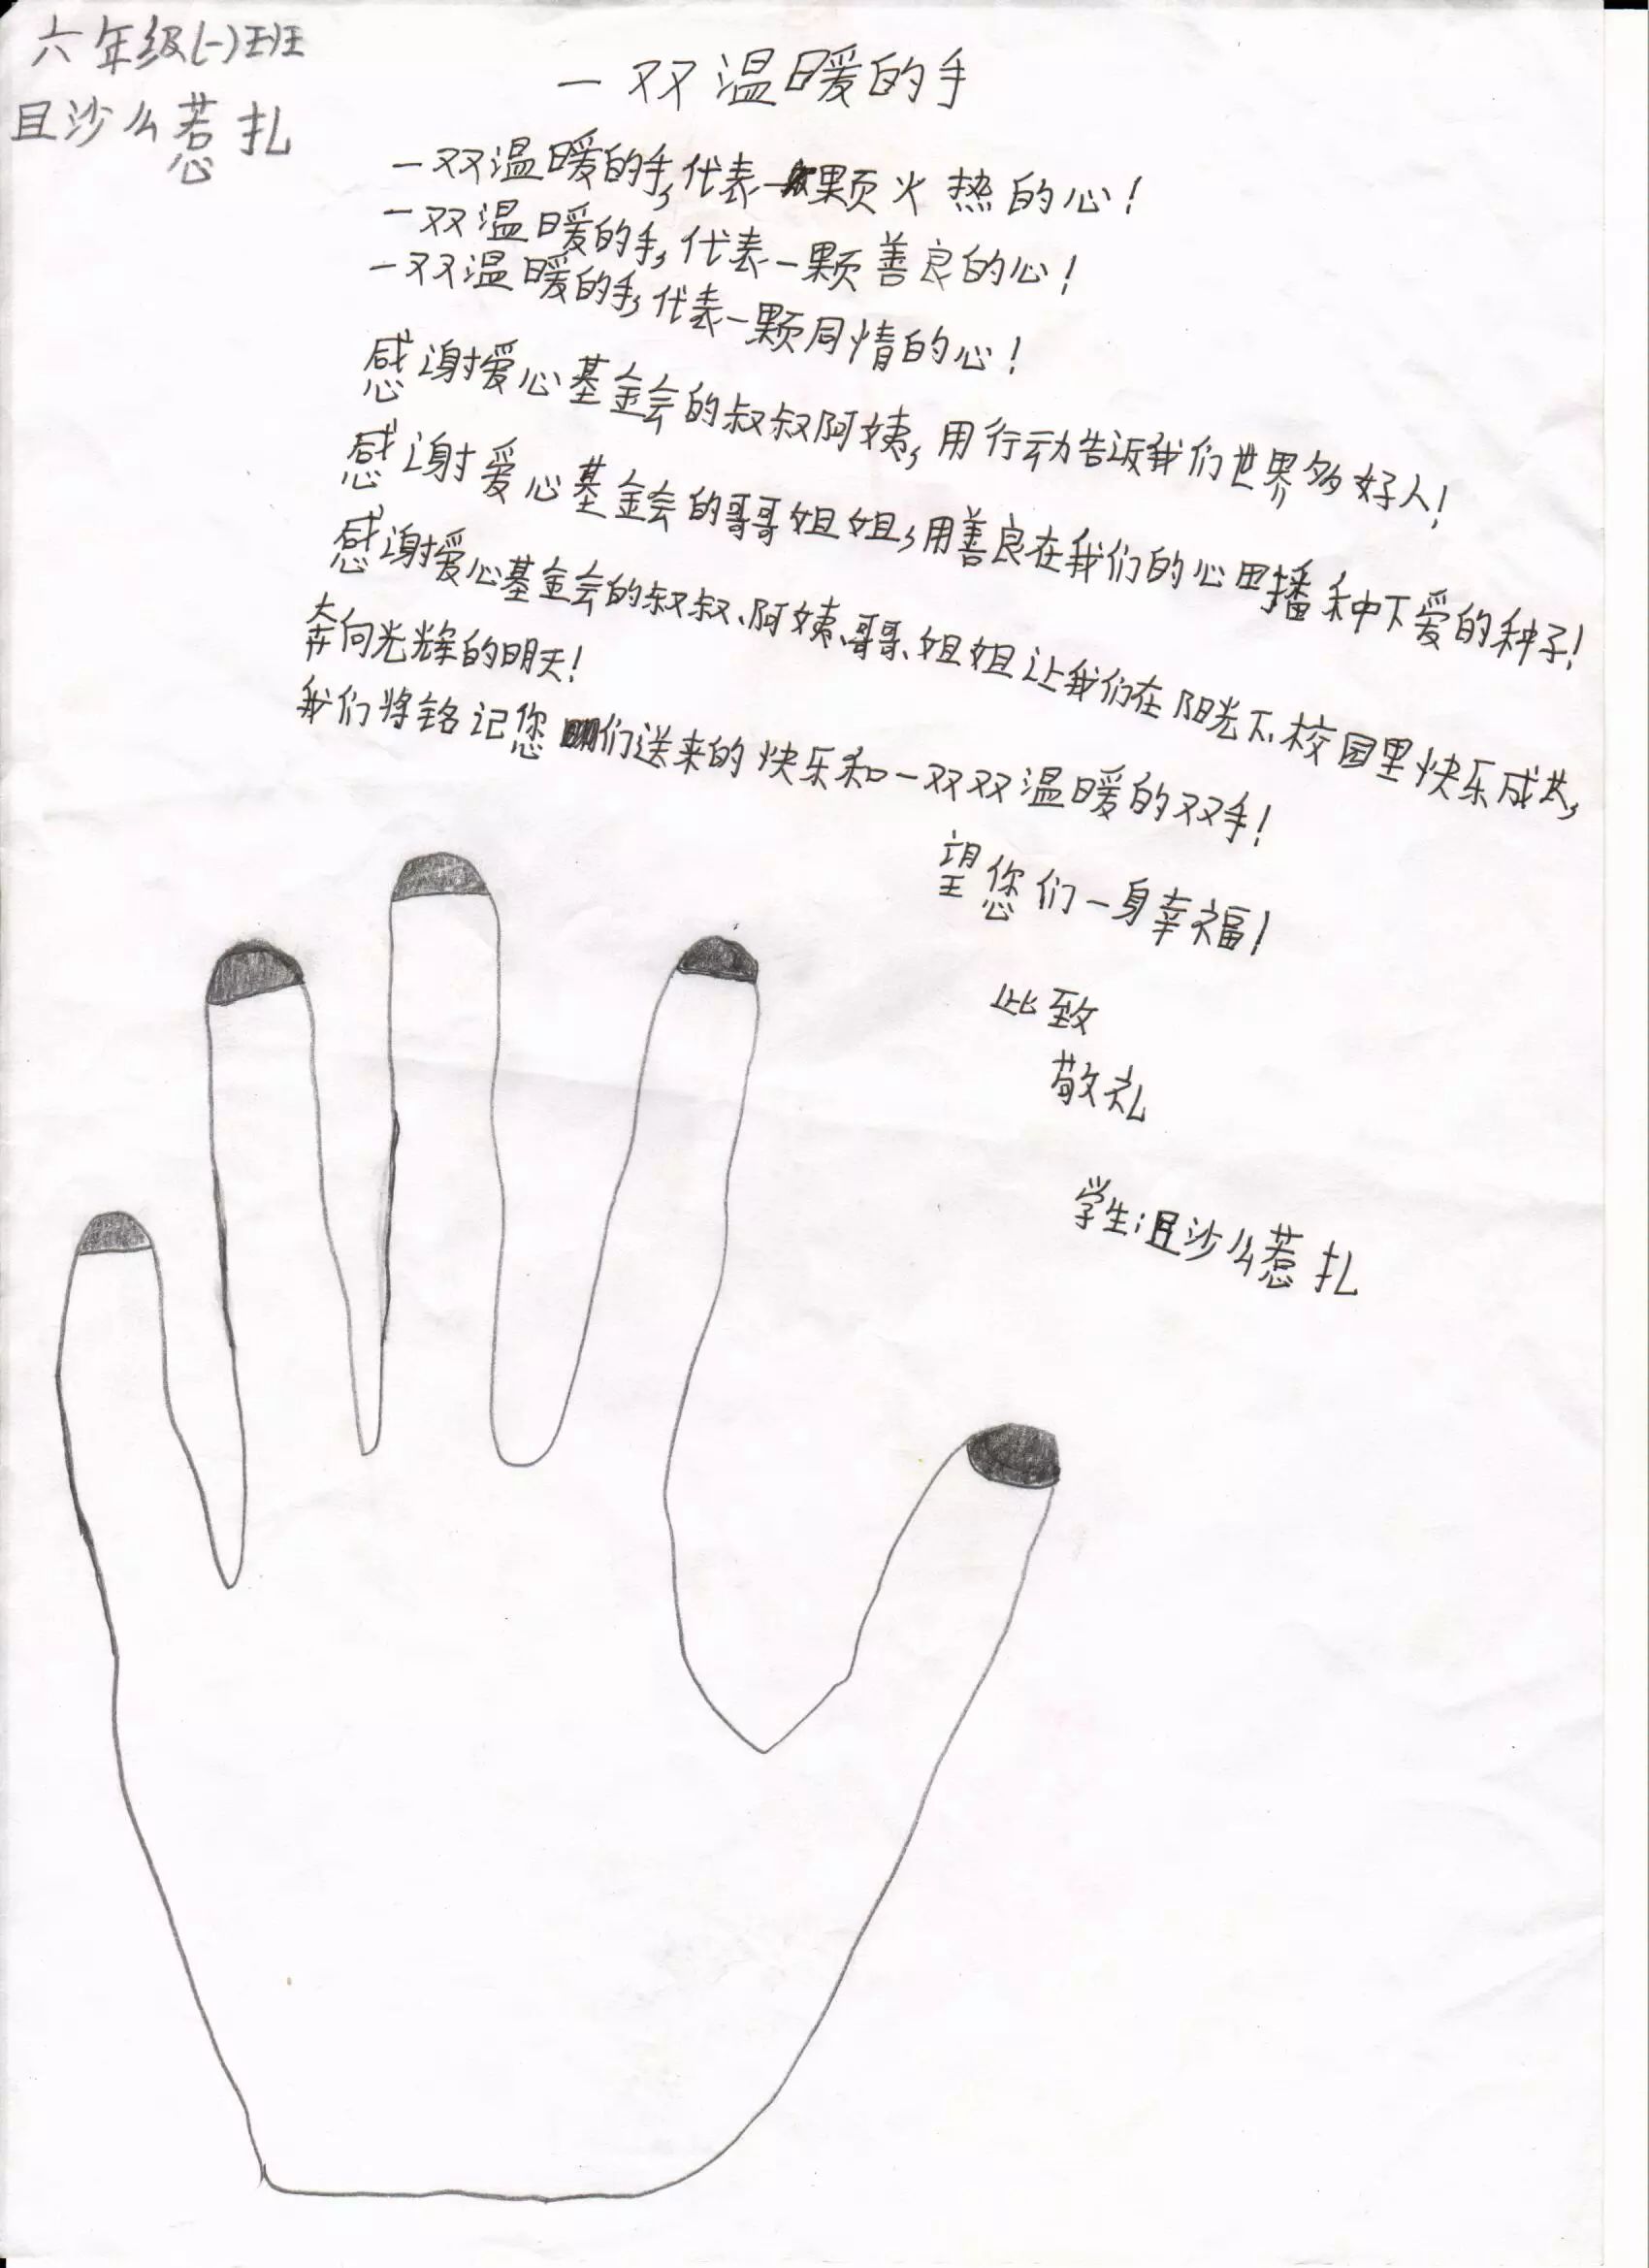 六年级(一)班
且沙么惹扎
一双温暖的手
一双温暖的手,代表一颗火热的心!
一双温暖的手,代表一颗善良的心!
一双温暖的手,代表一颗同情的心!
感谢爱心基金会的叔叔阿姨,用行动告诉我们世界多好人!
感谢爱心基金会的哥哥姐姐,用善良在我们的心田播种下爱的种子!
感谢爱心基金会的叔叔、阿姨、哥哥、姐姐让我们在阳光下,校园里快乐成长,
奔向光辉的明天!
我们将铭记您们送来的快乐和一双双温暖的双手!
望您们一身幸福!
此致
敬礼
学生:且沙么惹扎